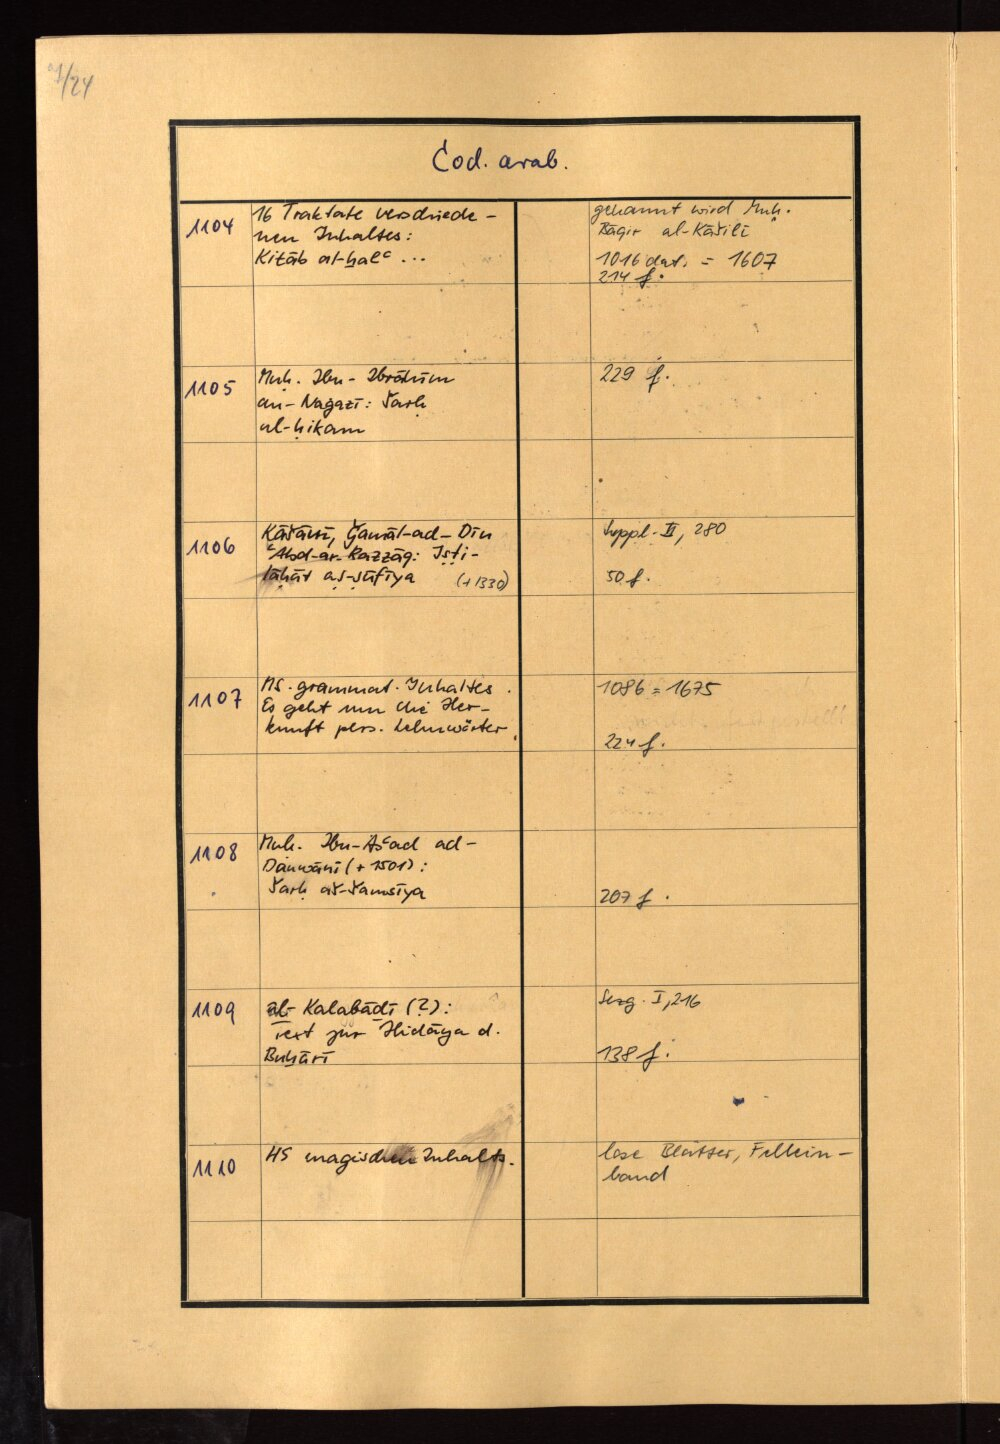 /24
Cod. arab.
1104
16 Traktate verschiede-
nen Inhaltes:
Kitāb al-ḫalᶜ ...
genannt wird Muḥ.
Bāqir al-Kāšilī
1016 dat. = 1607
214 f.
1105
Muḥ. Ibn-Ibrāhīm
an-Nagazī: Šarḥ
al-ḥikam
229 f.
1106
Kāšānī, Ǧamāl-ad-Dīn
ᶜAbd-ar-Razzāq: Iṣṭi-
lāḥāt aṣ-ṣūfīya (+1330)
Suppl. II, 280
50 f.
1107
MS. grammat. Inhaltes.
Es geht um die Her-
kunft pers. Lehnwörter.
1086 = 1675
224 f.
1108
Muḥ. Ibn-Asᶜad ad-
Dauwānī (+ 1501):
Šarḥ aš-Šamsīya
207 f.
1109
al-Kalabādī (?):
Text zur Hidāya d.
Buḫārī
Sezg. I, 216
138 f.
1110
HS magischen Inhalts.
lose Blätter, Fellein-
band